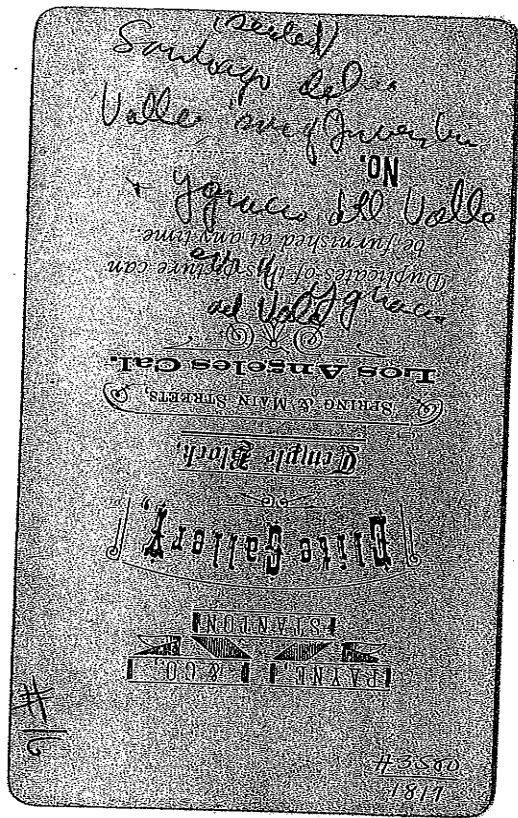 (seated)
Santiago del
Valle, son of
& Ygnacio del Valle
son of Ygnacio
del Valle
PAYNE, & CO,
STANTON
Elite Gallery,
Temple Block,
SPRING & MAIN STREETS,
LOS ANGELES CAL.
Duplicates of this picture can
be furnished at any time.
No.
#3500